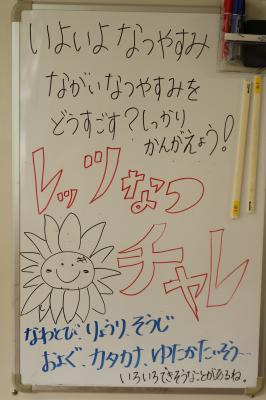 いよいよなつやすみ
ながいなつやすみを
どうすごす?しっかり
かんがえよう!
レッツなつ
チャレ
なわとび、りょうり、そうじ
およぐ、カタカナ、ゆたかたいそう…
いろいろできそうなことがあるね。